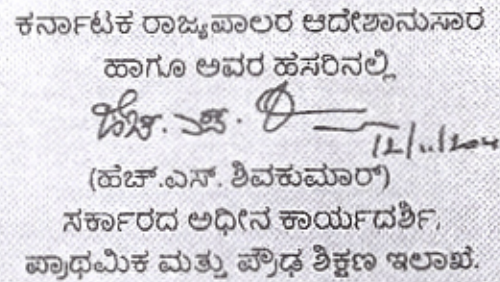 ಕರ್ನಾಟಕ ರಾಜ್ಯಪಾಲರ ಆದೇಶಾನುಸಾರ
ಹಾಗೂ ಅವರ ಹೆಸರಿನಲ್ಲಿ
ಹೆಚ್.ಎಸ್.
(ಹೆಚ್.ಎಸ್. ಶಿವಕುಮಾರ್)
ಸರ್ಕಾರದ ಅಧೀನ ಕಾರ್ಯದರ್ಶಿ,
ಪ್ರಾಥಮಿಕ ಮತ್ತು ಪ್ರೌಢ ಶಿಕ್ಷಣ ಇಲಾಖೆ.